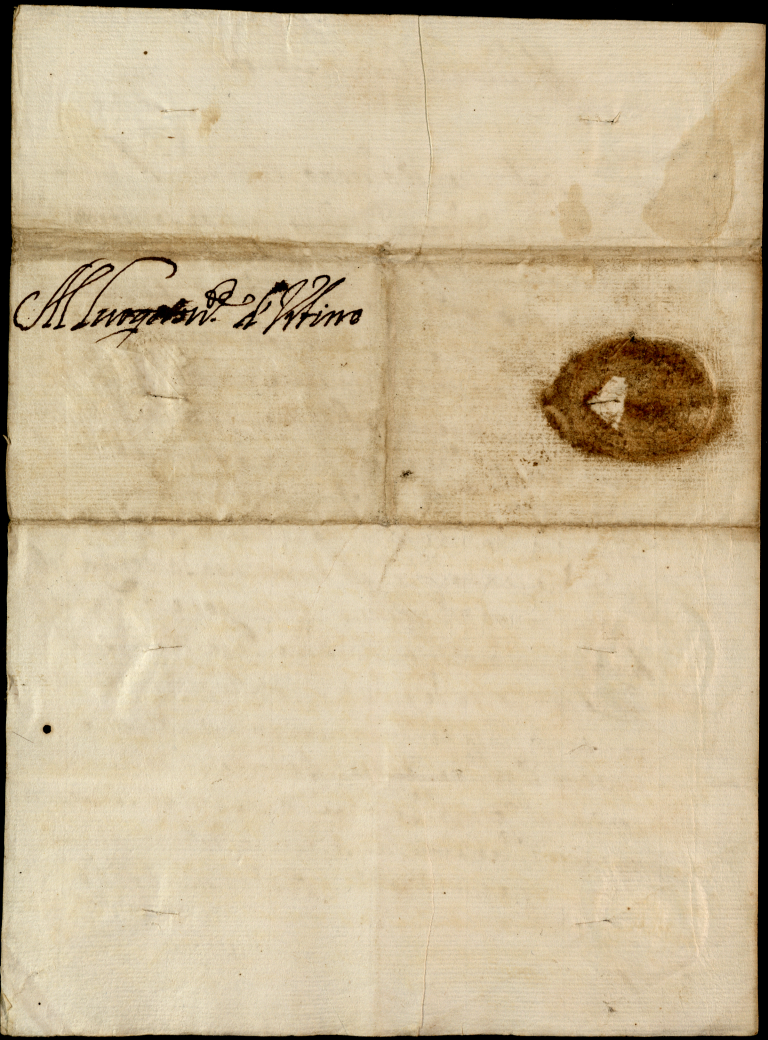 Al Luogoten.te d'Urbino